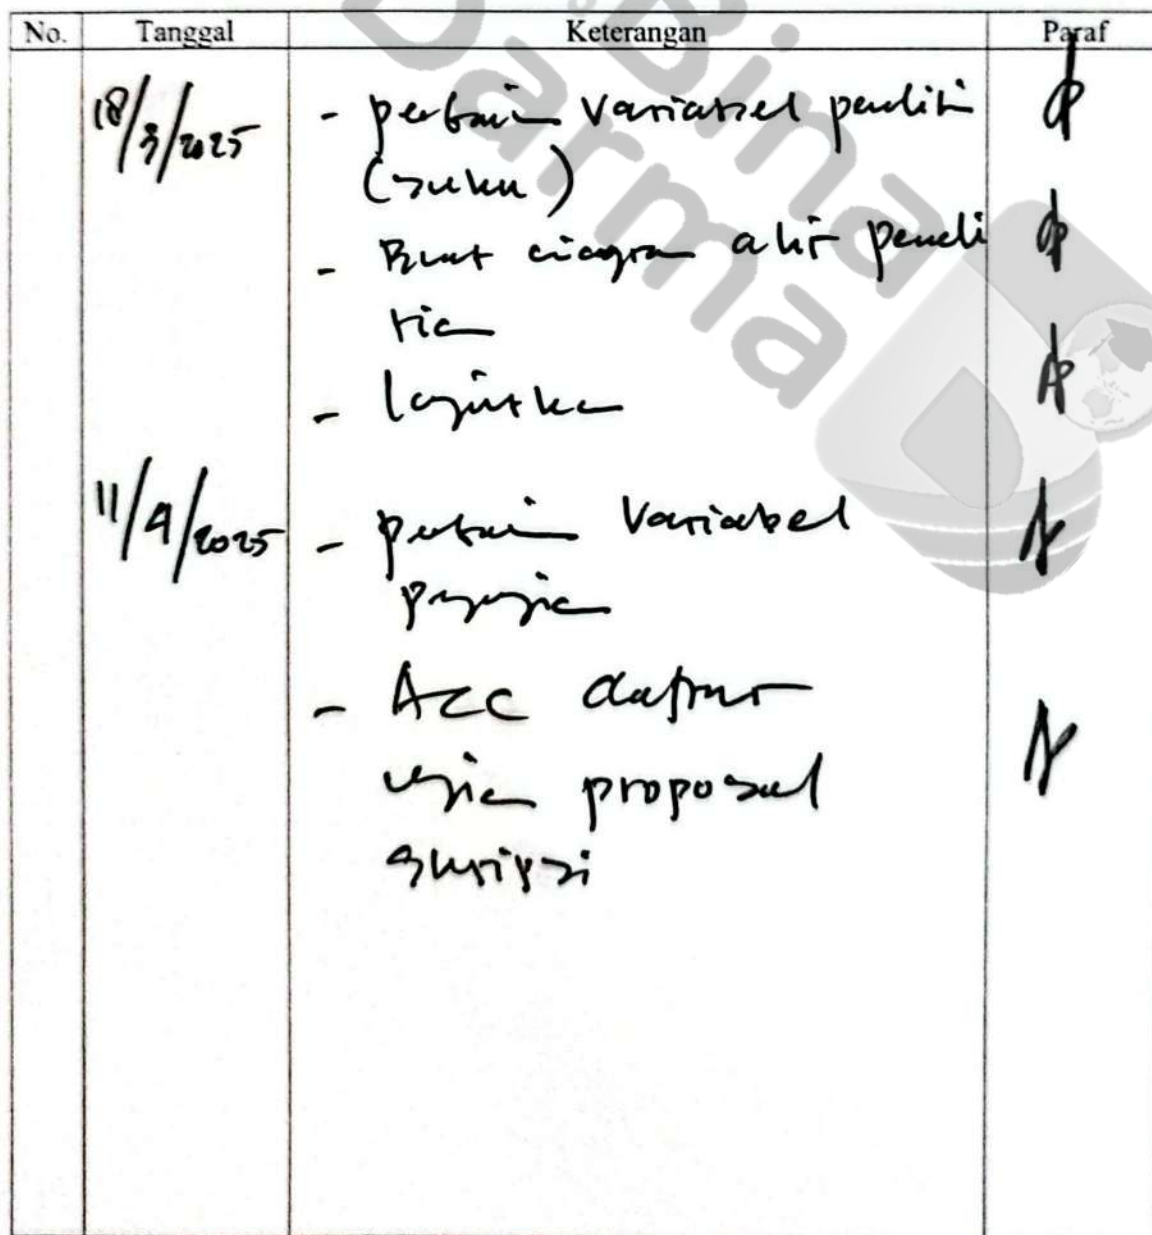 No. Tanggal Keterangan Paraf
Bina
Darma
18/3/2025 - perbaiki Variabel peneliti
(suhu)
- Buat diagram alir peneli
tian
- lanjutkan
11/4/2025 - perbaiki Variabel
pengujian
- Acc daftar
ujian proposal
skripsi